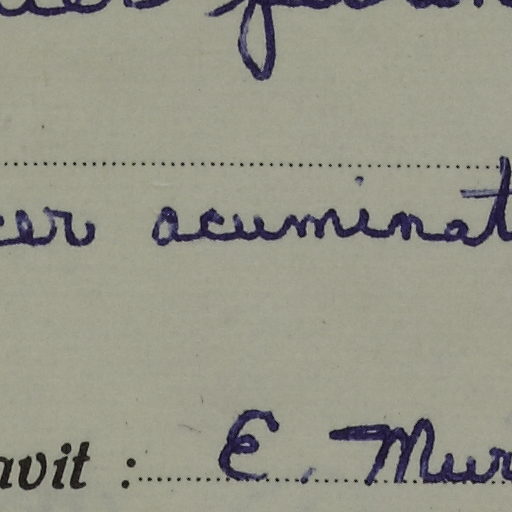 cer acuminat
avit : E. Mur